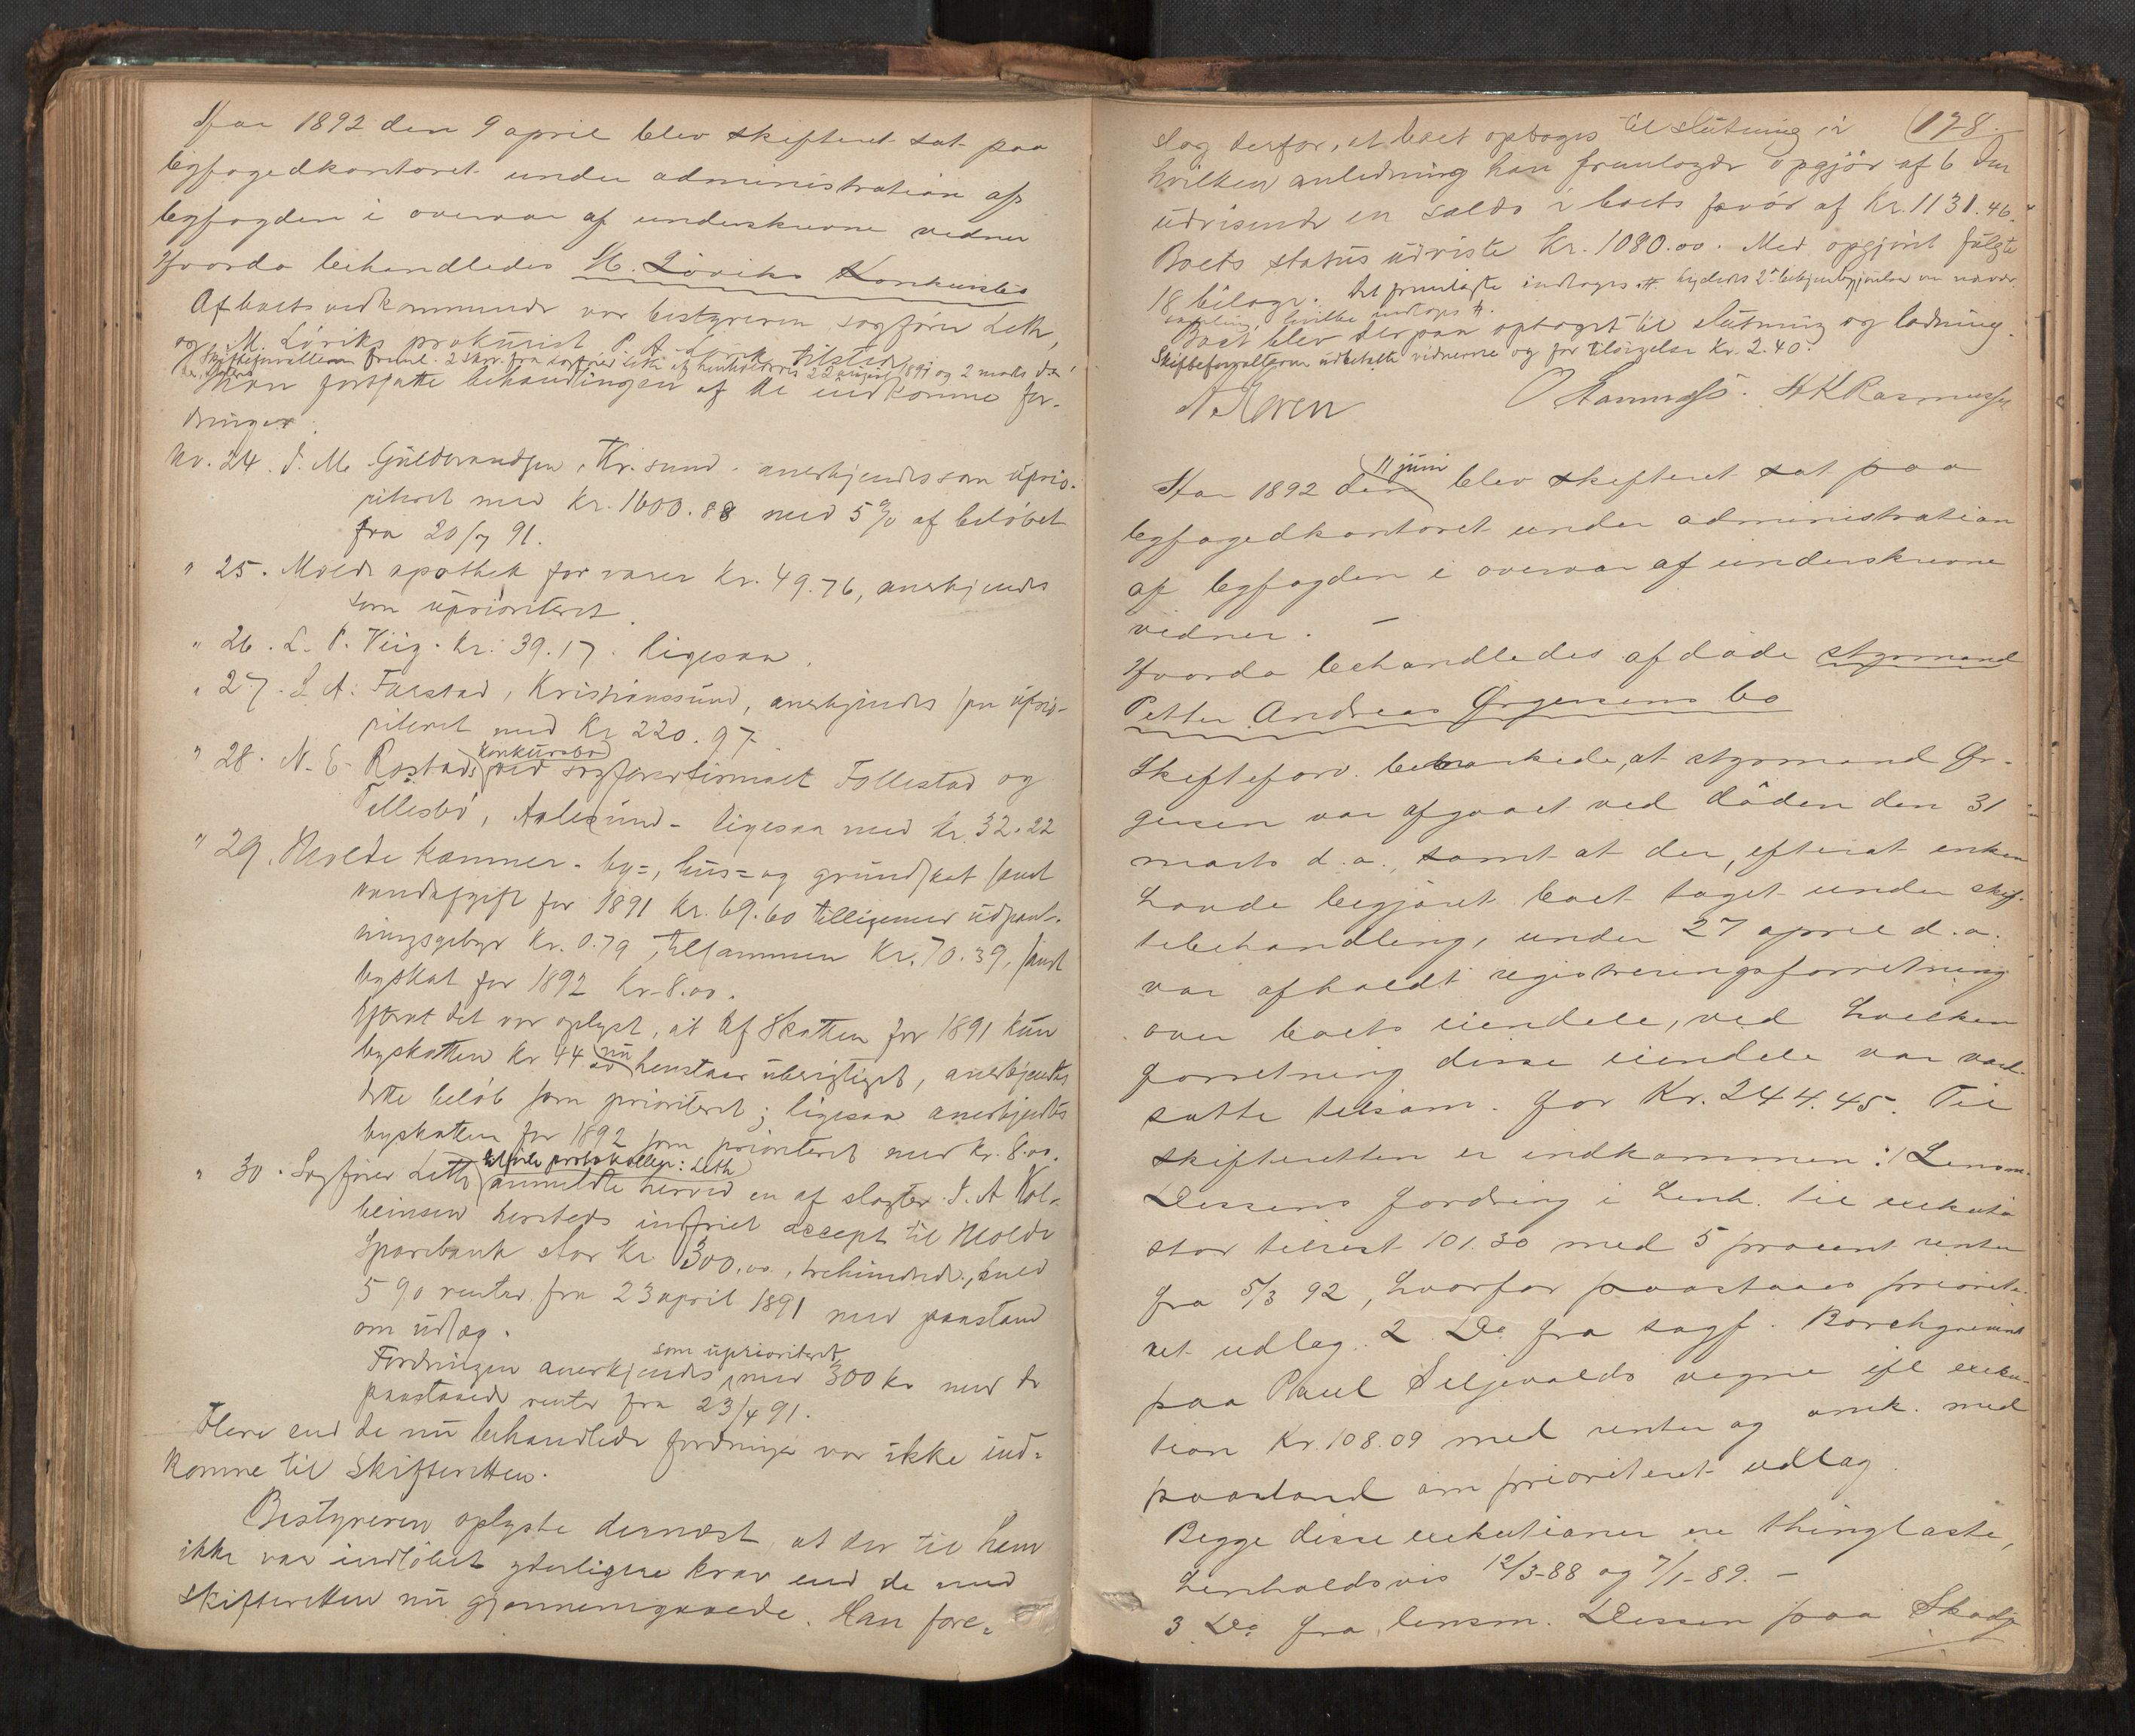 Aar 1892 den 9 april blev skifteret sat paa
byfogedkontoret under administration af
byfogden i overvær af underskrevne vidner
Hvorda behandledes M. Löviks Konkursbo
Af boets vedkommende var bestyreren, sagfører Leth,
og M. Löviks prokurist P. A. Lövik tilstede
Skifteforvalteren freml. 2 skr. fra sagfører Leth af henholdsvis 22 august 1891 og 2 marts d.a.
Man fortsatte behandlingen af de indkomne for-
dringer.
No. 24. J. M. Güldbrandsen, Kr.sund. anerkjendes som üprio-
riteret med Kr. 1600.88 med 5 % af beløbet
fra 20/7 91.
" 25. Molde apothek for varer Kr. 49.76, anerkjendes
som üprioriteret.
" 26. L. P. Viig. Kr. 39.17. ligesaa.
" 27. L. A. Farstad, Kristianssünd, anerkjendes som üprio-
riteret med Kr 220.97.
" 28. N. E. Rostads konkürsbo ved sagførerfirmaet Follestad og
Tellesbö, Aalesünd - ligesaa med Kr. 32.22
" 29. Molde Kæmner - by=, hüs= og gründskat samt
vandafgift for 1891 Kr. 69.60 tilligemed üdpant-
ningsgebyr Kr. 0.79, tilsammen Kr. 70.39, samt
byskat for 1892 Kr. 8.00.
Efterat det var oplyst, at af Skatten for 1891 kün
byskatten Kr 44 nü henstaar überigtiget, anerkjendtes
dette beløb som prioriteret; ligesaa anerkjendtes
byskatten for 1892 som prioriteret med Kr. 8.00.
" 30. Sagfører Leth til protokollen: Leth anmeldte herved en af slagter J. A. Kol-
beinsen hersteds indfriet accept til Molde
Sparebank stor Kr 300.00, trehündrede, med
5 % renter fra 23 april 1891 med paastand
om üdlæg.
Fordringen anerkjendes som üprioriteret med 300 kr med de
paastaaede renter fra 23/4 91.
Flere end de nü behandlede fordringer var ikke ind=
komne til Skifteretten.
Bestyreren oplyste dernæst, at der til ham
ikke var indløbet yderligere krav end de ved
Skifteretten nü gjennemgaaede. Han fore=
178
slog derfor, at boet optoges til slütning i
hvilken anledning han fremlagde opgjör af 6 dm
üdvisende en saldo i boets favör af Kr. 1131.46.
Boets status üdviste Kr. 1080.00. Med opgjöret fülgte
18 bilage. Det fremlagte indtages
hvilke indtages
Boet blev derpaa optaget til slütning og lodning.
Skifteforvalteren üdbetalte vidnerne og for tilsigelse Kr. 2.40.
K Rasmussen
Aar 1892 den 11 juni blev skifteret sat paa
byfogedkontoret under administration
af byfogden i overvær af underskrevne
vidner. -
Hvorda behandledes afdøde styrmand
Petter Andreas Ørgersens bo
Skifteforv. bemærkede, at styrmand Ør-
gersen var afgaaet ved døden den 31
marts d. a., samt at der, efterat enken
havde begjæret boet taget under skif-
tebehandling, under 27 april d. a.
var afholdt registreringsforretning
over boets eiendele, ved hvilken
forretning disse eiendele var værd-
satte tilsam. for Kr. 244.45. Til
skifteretten er indkommen: 1 Lensm.
Dessens fordring i henh. til exekution
stor tilrest 101.30 med 5 procent renter
fra 5/3 92, hvorfor paastaaes priorite-
ret udlæg. 2. Do fra sagf. Borchgrevink
paa Paul Seljevolds vegne ifl exeku-
tion Kr. 108.09 med renter og omk. med
paastand om prioriteret udlæg.
Begge disse exekutioner er thinglæste,
henholdsvis 12/3-88 og 7/1-89. -
3. Do fra lensm. Dessen paa